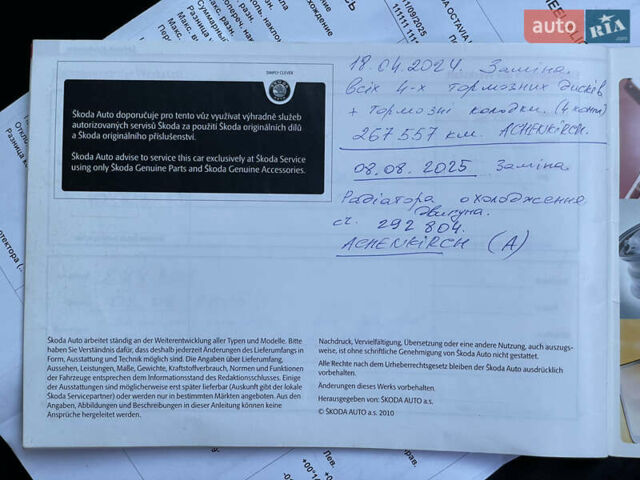 SIMPLY CLEVER
Škoda Auto doporučuje pro tento vůz využívat výhradně služeb
autorizovaných servisů Škoda za použití Škoda originálních dílů
a Škoda originálního příslušenství.
Škoda Auto advise to service this car exclusively at Škoda Service
using only Škoda Genuine Parts and Škoda Genuine Accessories.
18.04.2024. Заміна.
всіх 4-х тормозних дисків
+ тормозні колодки. (4 конти)
267 557 км. ACHENKIRCH.
08.08.2025 Заміна
Радіатора охолодження
двигуна.
ст. 292 804.
ACHENKIRCH (A)
Škoda Auto arbeitet ständig an der Weiterentwicklung aller Typen und Modelle. Bitte
haben Sie Verständnis dafür, dass deshalb jederzeit Änderungen des Lieferumfangs in
Form, Ausstattung und Technik möglich sind. Die Angaben über Lieferumfang,
Aussehen, Leistungen, Maße, Gewichte, Kraftstoffverbrauch, Normen und Funktionen
der Fahrzeuge entsprechen dem Informationsstand des Redaktionsschlusses. Einige
der Ausstattungen sind möglicherweise erst später lieferbar (Auskunft gibt der lokale
Škoda Servicepartner) oder werden nur in bestimmten Märkten angeboten. Aus den
Angaben, Abbildungen und Beschreibungen in dieser Anleitung können keine
Ansprüche hergeleitet werden.
Nachdruck, Vervielfältigung, Übersetzung oder eine andere Nutzung, auch auszugs-
weise, ist ohne schriftliche Genehmigung von Škoda Auto nicht gestattet.
Alle Rechte nach dem Urheberrechtsgesetz bleiben der Škoda Auto ausdrücklich
vorbehalten.
Änderungen dieses Werks vorbehalten.
Herausgegeben von: ŠKODA AUTO a.s.
© ŠKODA AUTO a.s. 2010
11/09/2025
auto RIA
.com